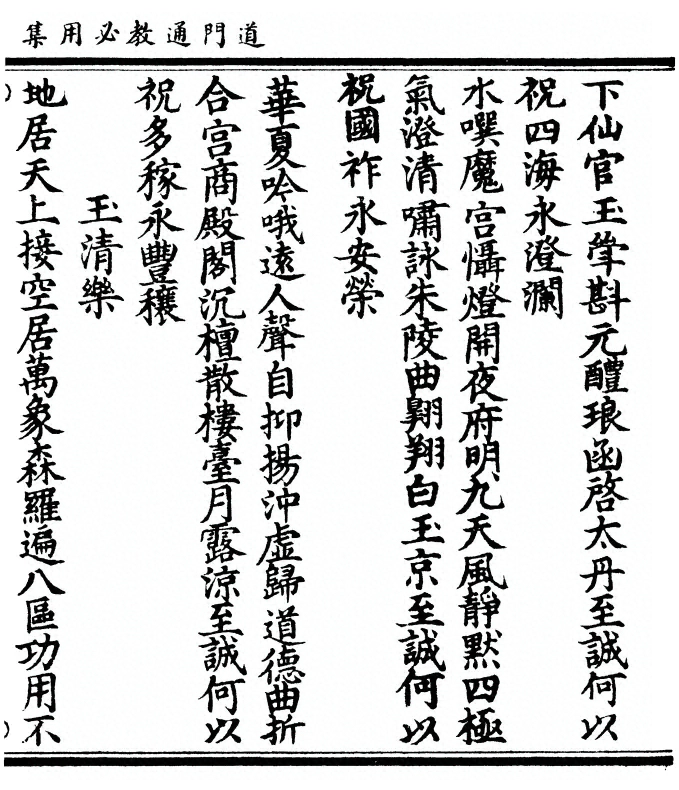 道門通教必用集
下仙官玉斝斟元醴琅函啓太丹至誠何以
祝四海永澄瀾
水噀魔宮懾燈開夜府明九天風靜默四極
氣澄清嘯詠朱陵曲翺翔白玉京至誠何以
祝國祚永安榮
華夏吟哦遠人聲自抑揚沖虛歸道德曲折
合宮商殿閣沉檀散樓臺月露涼至誠何以
祝多稼永豐穰
玉清樂
地居天上接空居萬象森羅遍八區功用不